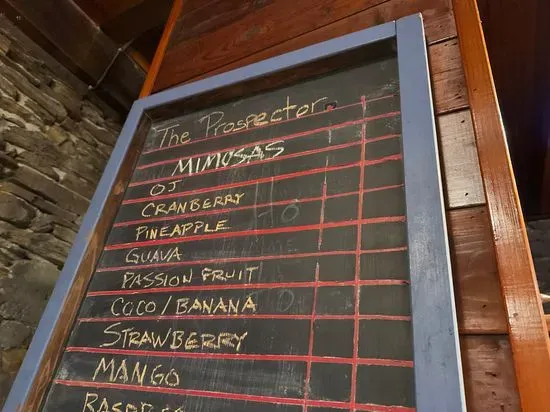 The Prospector
MIMOSAS
OJ
CRANBERRY
PINEAPPLE
GUAVA
PASSION FRUIT
COCO/BANANA
STRAWBERRY
MANGO